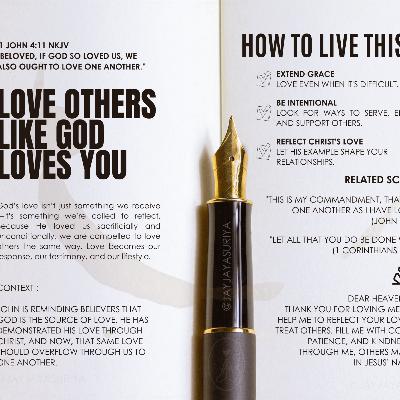 1 JOHN 4:11 NKJV
BELOVED, IF GOD SO LOVED US, WE
ALSO OUGHT TO LOVE ONE ANOTHER."
LOVE OTHERS
LIKE GOD
LOVES YOU
God's love isn't just something we receive
—it's something we're called to reflect.
Because He loved us sacrificially and
unconditionally, we are compelled to love
others the same way. Love becomes our
response, our testimony, and our lifestyle.
CONTEXT :
JOHN IS REMINDING BELIEVERS THAT
GOD IS THE SOURCE OF LOVE. HE HAS
DEMONSTRATED HIS LOVE THROUGH
CHRIST, AND NOW, THAT SAME LOVE
SHOULD OVERFLOW THROUGH US TO
ONE ANOTHER.
@JAYJAYASURIYA
HOW TO LIVE THIS
EXTEND GRACE
LOVE EVEN WHEN IT'S DIFFICULT.
BE INTENTIONAL
LOOK FOR WAYS TO SERVE,
AND SUPPORT OTHERS.
REFLECT CHRIST'S LOVE
LET HIS EXAMPLE SHAPE YOUR
RELATIONSHIPS.
RELATED
"THIS IS MY COMMANDMENT,
ONE ANOTHER AS I HAVE
(JOHN
"LET ALL THAT YOU DO BE DONE
(1 CORINTHIANS
DEAR
THANK YOU FOR LOVING
HELP ME TO REFLECT YOUR
TREAT OTHERS. FILL ME WITH
PATIENCE, AND
THROUGH ME, OTHERS
IN JESUS'